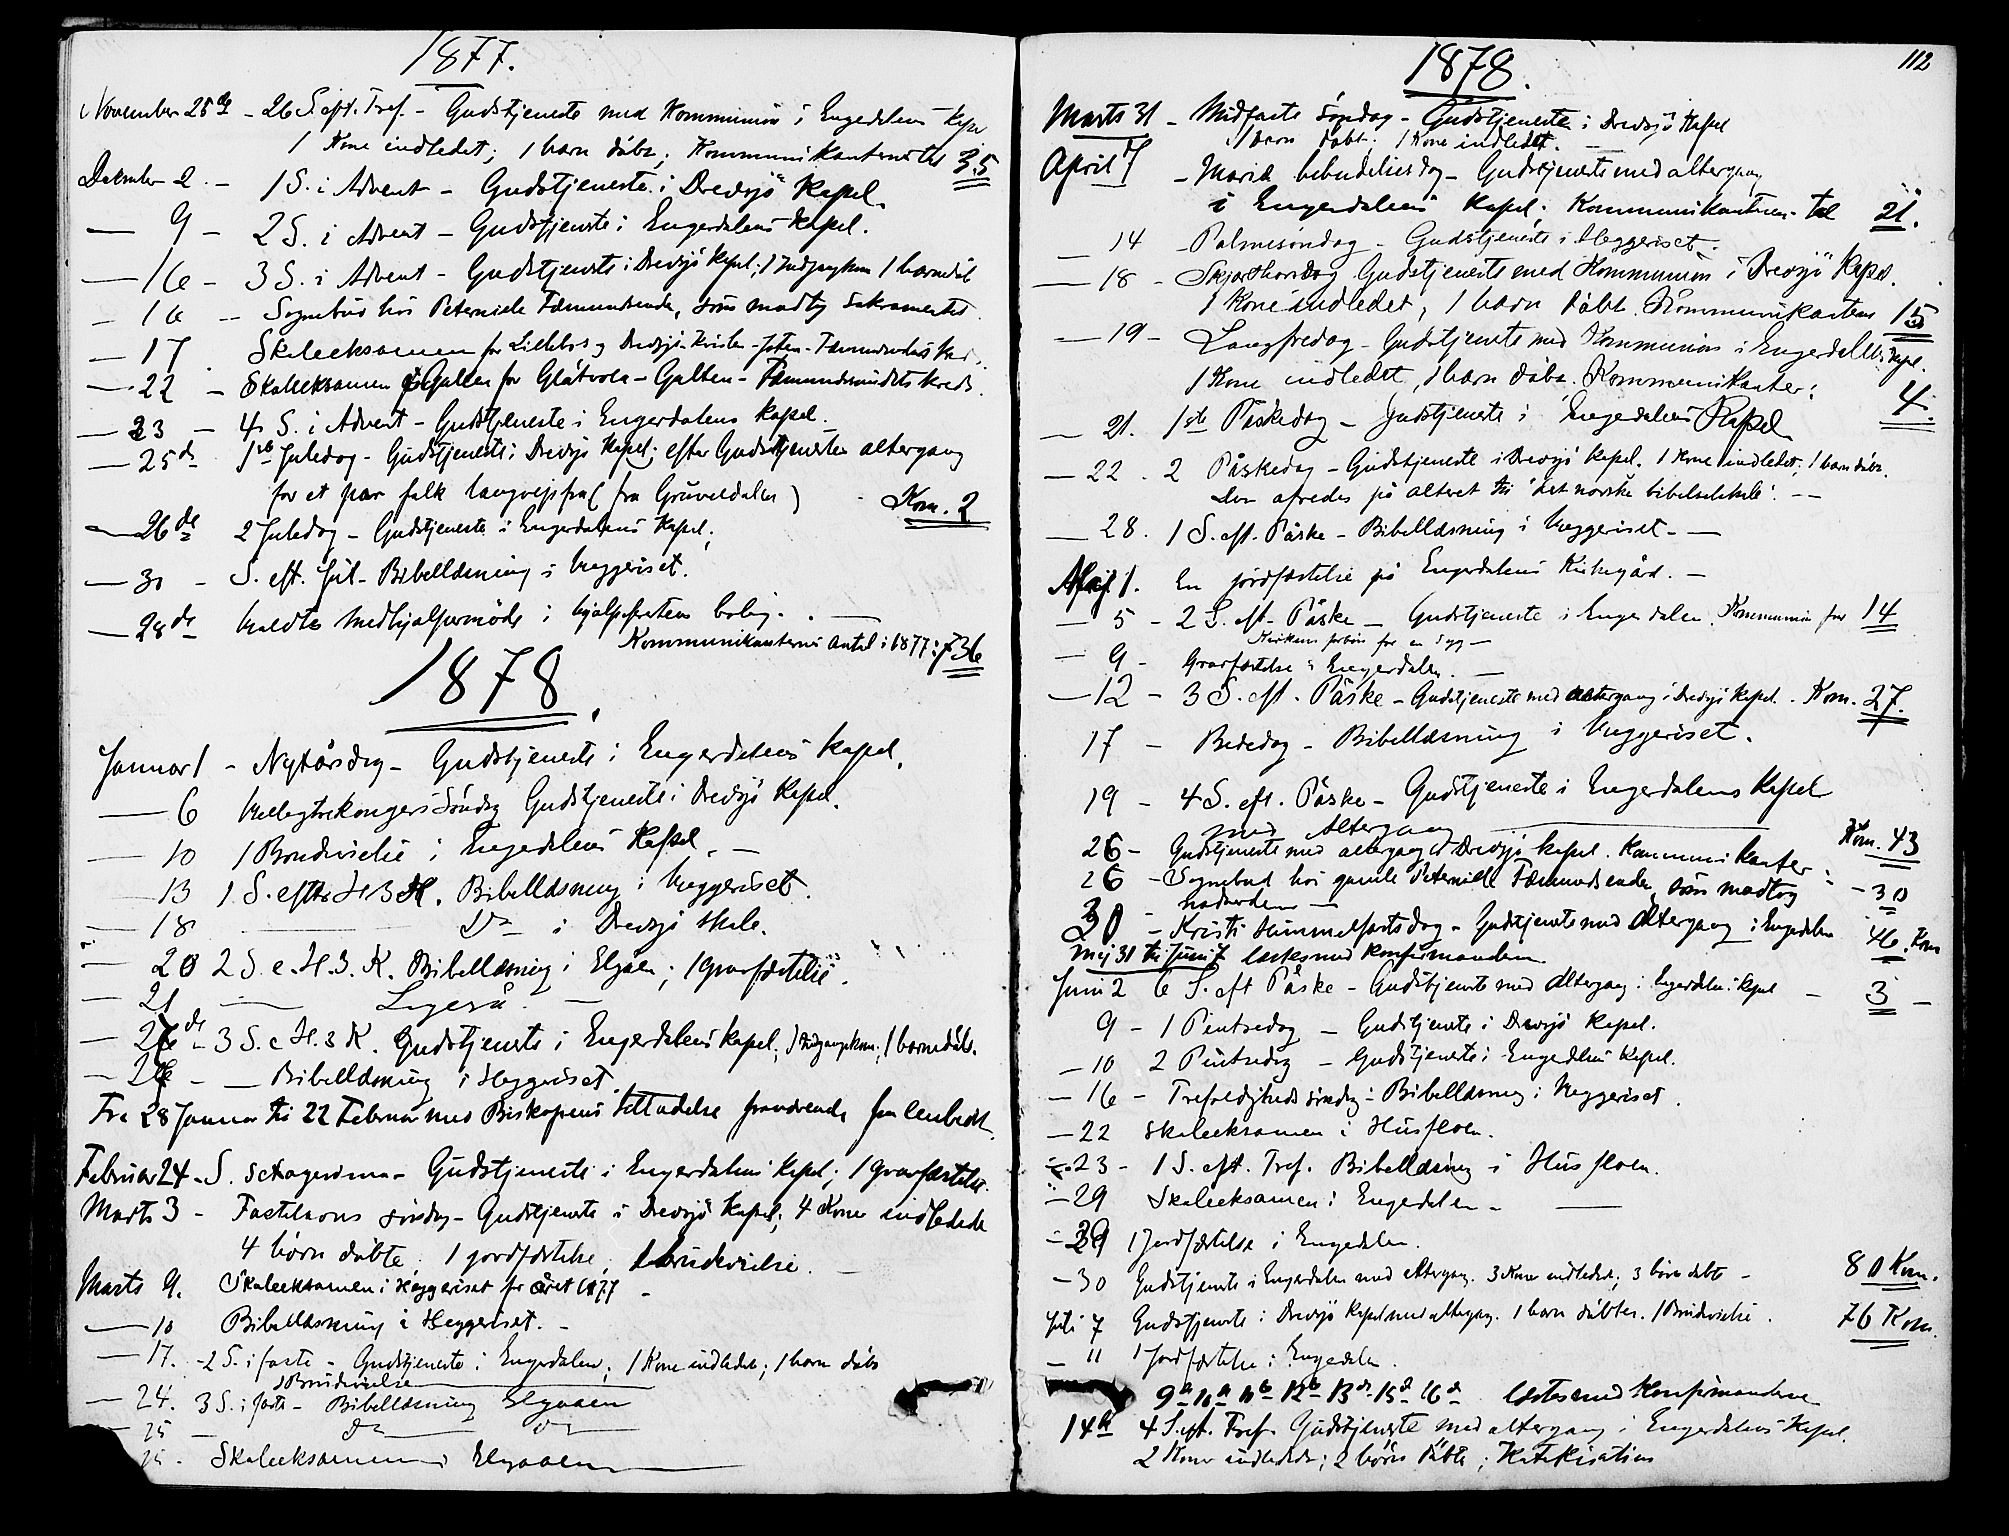 1877.
November 25de - 26 S. eft. Tref. - Gudstjeneste med Kommunion i Engerdalens Kapel
1 Kone indledet; 1 barn døbt; Kommunikanternes tal 35
Dekember 2. - 1 S. i Advent - Gudstjeneste i Drevsjø Kapel.
— 9 - 2 S. i Advent - Gudstjeneste i Engerdalens Kapel.
— 16 - 3 S. i Advent - Gudstjeneste i Drevsjø Kapel; 1 barnedåb
— 16 - Sognebud hos Femundsende, som modtog Sakramentet
— 17 Skoleeksamen for Lillebo og Drevsjø
— 22 - Skoleeksamen i Galten for Glåtvola - Galten - Femundsundets Kreds.
— 23 - 4 S. i Advent - Gudstjeneste i Engerdalens Kapel.
— 25de 1ste Juledag - Gudstjeneste i Drevsjø Kapel; efter Gudstjenesten altergang
for et par folk langvejsfra (fra Grøveldalen) - Kom. 2
— 26de 2 Juledag - Gudstjeneste i Engerdalens Kapel.
— 30 - S. eft. Jul - Bibellæsning i Heggeriset.
— 28de holdtes Medhjælpermøde i bolig. —
Kommunikanternes antal i 1877: 736
1878.
Januar 1 - Nytårsdag - Gudstjeneste i Engerdalens Kapel.
— 6 Helligtrekongers Søndag Gudstjeneste i Drevsjø Kapel.
— 10 1 Brudevielse i Engerdalens Kapel. —
— 13 1 S. efter H 3 K. Bibellæsning i Heggeriset.
— 18 — Do i Drevsjø skole.
— 20 2 S. e. H. 3. K. Bibellæsning i Elgåen; 1 gravfæstelse.
— 21 — Ligeså. —
— 27de - 3 S. e H. 3 K. Gudstjeneste i Engerdalens Kapel; 1 barnedåb.
— - — Bibellæsning i Heggeriset.
Fra 28 Januar til 22 Februar med Biskopens Tilladelse fraværende fra embedet.
Februar 24 - S. Septuagesima - Gudstjeneste i Engerdalens Kapel; 1 gravfæstelse.
Marts 3 - Fastelavns søndag - Gudstjeneste i Drevsjø Kapel; 4 Koner indledede
4 børn døbte, 1 jordfæstelse, 1 brudevielse. —
Marts 9. Skoleeksamen i Heggeriset for året 1877 -
— 10 Bibellæsning i Heggeriset. -
— 17. - 2 S. i faste - Gudstjeneste i Engerdalen; 1 Kone indledet; 1 barn døbt
1 Brudevielse
— 24. 3 S. i faste - Bibellæsning Elgaaen
— 25 — Do — Do —
25. Skoleeksamen i Elgaaen —
112
1878.
Marts 31 - Midfaste Søndag - Gudstjeneste i Drevsjø Kapel
1 barn døbt; 1 Kone indledet. —
April 7 - Mariæ bebudelses dag - Gudstjeneste med altergang
i Engerdalens Kapel; Kommunikanternes tal 21.
— 14 - Palmesøndag - Gudstjeneste i Heggeriset.
— 18 - Skjærthorsdag Gudstjeneste med Kommunion i Drevsjø Kapel.
1 Kone indledet, 1 barn døbt. Kommunikanters 15
— 19 - Langfredag - Gudstjeneste med Kommunion i Engerdalens Kapel.
1 Kone indledet, 1 barn døbt. Kommunikanter: 4.
— 21. 1ste Påskedag - Gudstjeneste i Engerdalens Kapel
— 22. 2 Påskedag - Gudstjeneste i Drevsjø Kapel. 1 Kone indledet; 1 barn døbt.
Der ofredes på alteret til "det norske bibelselskab". —
— 28. 1 S. eft. Påske - Bibellæsning i Heggeriset - —
Maj 1. En jordfæstelse på Engerdalens Kirkegård. -
— 5 - 2 S. eft. Påske - Gudstjeneste i Engerdalen. Kommunion for 14
Kirkens forbøn for en syg -
— 9 - Gravfæstelse i Engerdalen. —
— 12 - 3 S. eft. Påske - Gudstjeneste med altergang i Drevsjø Kapel. Kom. 27.
17 - Bededag - Bibellæsning i Heggeriset.
19 - 4 S. eft. Påske - Gudstjeneste i Engerdalens Kapel
med Altergang — Kom. 43
26 - Gudstjeneste med altergang i Drevsjø Kapel. Kommunikanter: - 30
26 - Sognebud hos gamle Femundsenden, som modtog
nadverden —
30 - Kristi Himmelfarts dag - Gudstjeneste med Altergang i Engerdalen 46 Kom
Maj 31 til Juni 7 læstes med konfirmanderne.
Juni 2 6 S. eft Påske - Gudstjeneste med Altergang i Engerdalens Kapel - 3 —
9 - 1 Pintsedag - Gudstjeneste i Drevsjø Kapel.
— 10 2 Pintsedag - Gudstjeneste i Engerdalens Kapel.
— 16 - Trefoldigheds søndag - Bibellæsning i Heggeriset.
— 22 Skoleeksamen i Husfloen.
— 23 - 1 S. eft. Tref. Bibellæsning i Husfloen.
— 29 Skoleeksamen i Engerdalen - —
— 29 1 Jordfæstelse i Engerdalen.
— 30 Gudstjeneste i Engerdalen med altergang. 3 Koner indledet; 3 børn døbte - 80 Kom.
Juli 7 Gudstjeneste i Drevsjø Kapel med altergang. 1 barn døbtes. 1 Brudevielse. 76 Kom.
— 11 1 Jordfæstelse i Engerdalen.
9de 10de 11te 12te 13de 15de 16de læstes med Konfirmanderne
14de 4 S. eft. Tref. Gudstjeneste med altergang i Engerdalens Kapel.
2 Koner indledede; 2 børn døbte; Katekisation